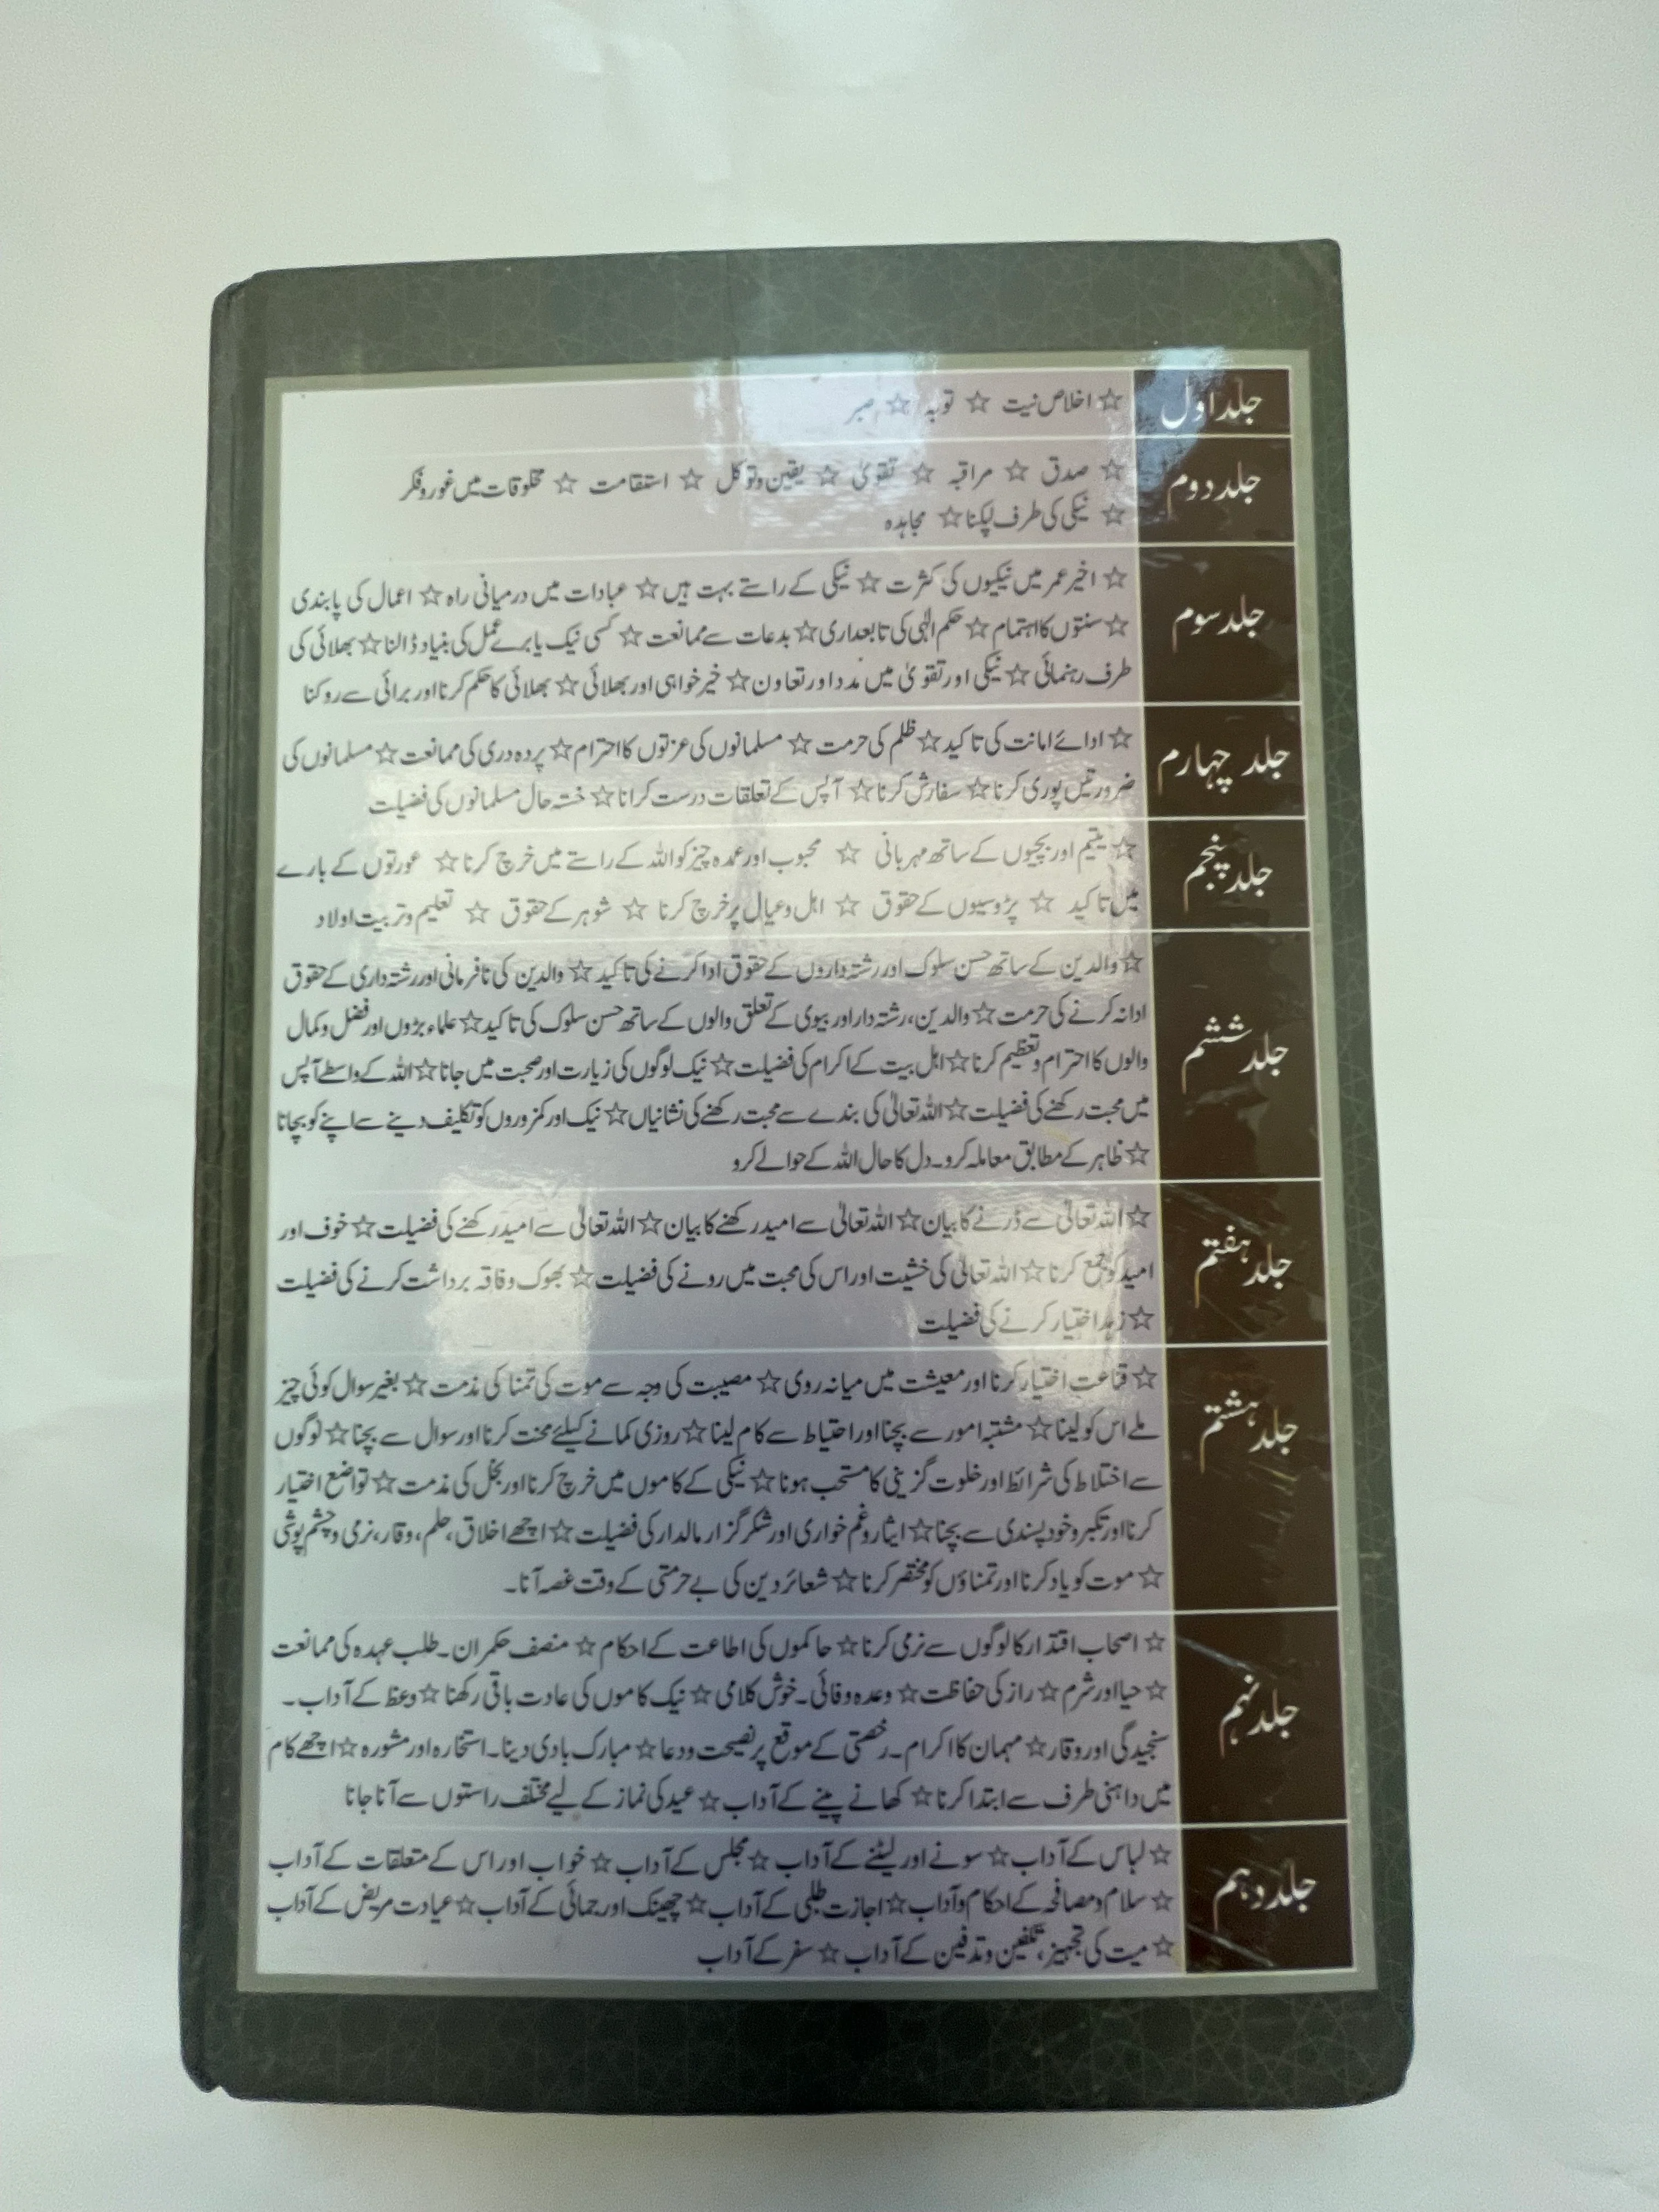 جلد اول
☆ اخلاص نیت ☆ توبہ ☆ صبر
جلد دوم
☆ صدق ☆ مراقبہ ☆ تقویٰ ☆ یقین وتوکل ☆ استقامت ☆ مخلوقات میں غوروفکر
☆ نیکی کی طرف لپکنا ☆ مجاہدہ
جلد سوم
☆ اخیر عمر میں نیکیوں کی کثرت ☆ نیکی کے راستے بہت ہیں ☆ عبادات میں درمیانی راہ ☆ اعمال کی پابندی
☆ سنتوں کا اہتمام ☆ حکم الٰہی کی تابعداری ☆ بدعات سے ممانعت ☆ کسی نیک یا برے عمل کی بنیاد ڈالنا ☆ بھلائی کی
طرف رہنمائی ☆ نیکی اور تقویٰ میں مدد اور تعاون ☆ خیر خواہی اور بھلائی ☆ بھلائی کا حکم کرنا اور برائی سے روکنا
جلد چہارم
☆ ادائے امانت کی تاکید ☆ ظلم کی حرمت ☆ مسلمانوں کی عزتوں کا احترام ☆ پردہ دری کی ممانعت ☆ مسلمانوں کی
ضرورتیں پوری کرنا ☆ سفارش کرنا ☆ آپس کے تعلقات درست کرانا ☆ خستہ حال مسلمانوں کی فضیلت
جلد پنجم
☆ یتیم اور بچیوں کے ساتھ مہربانی ☆ محبوب اور عمدہ چیز کو اللہ کے راستے میں خرچ کرنا ☆ عورتوں کے بارے
میں تاکید ☆ پڑوسیوں کے حقوق ☆ اہل وعیال پر خرچ کرنا ☆ شوہر کے حقوق ☆ تعلیم وتربیت اولاد
جلد ششم
☆ والدین کے ساتھ حسن سلوک اور رشتہ داروں کے حقوق ادا کرنے کی تاکید ☆ والدین کی نافرمانی اور رشتہ داری کے حقوق
ادا نہ کرنے کی حرمت ☆ والدین، رشتہ دار اور بیوی کے تعلق والوں کے ساتھ حسن سلوک کی تاکید ☆ علماء بڑوں اور فضل وکمال
والوں کا احترام وتعظیم کرنا ☆ اہل بیت کے اکرام کی فضیلت ☆ نیک لوگوں کی زیارت اور صحبت میں جانا ☆ اللہ کے واسطے آپس
میں محبت رکھنے کی فضیلت ☆ اللہ تعالیٰ کی بندے سے محبت رکھنے کی نشانیاں ☆ نیک اور کمزوروں کو تکلیف دینے سے اپنے کو بچانا
☆ ظاہر کے مطابق معاملہ کرو۔ دل کا حال اللہ کے حوالے کرو
جلد ہفتم
☆ اللہ تعالیٰ سے ڈرنے کا بیان ☆ اللہ تعالیٰ سے امید رکھنے کا بیان ☆ اللہ تعالیٰ سے امید رکھنے کی فضیلت ☆ خوف اور
امید کو جمع کرنا ☆ اللہ تعالیٰ کی خشیت اور اس کی محبت میں رونے کی فضیلت ☆ بھوک وفاقہ برداشت کرنے کی فضیلت
☆ زہد اختیار کرنے کی فضیلت
جلد ہشتم
☆ قناعت اختیار کرنا اور معیشت میں میانہ روی ☆ مصیبت کی وجہ سے موت کی تمنا کی مذمت ☆ بغیر سوال کوئی چیز
ملے اس کو لینا ☆ مشتبہ امور سے بچنا اور احتیاط سے کام لینا ☆ روزی کمانے کیلئے محنت کرنا اور سوال سے بچنا ☆ لوگوں
سے اختلاط کی شرائط اور خلوت گزینی کا مستحب ہونا ☆ نیکی کے کاموں میں خرچ کرنا اور بخل کی مذمت ☆ تواضع اختیار
کرنا اور تکبر وخود پسندی سے بچنا ☆ ایثار وغم خواری اور شکر گزار مالدار کی فضیلت ☆ اچھے اخلاق، حلم، وقار، نرمی وچشم پوشی
☆ موت کو یاد کرنا اور تمناؤں کو مختصر کرنا ☆ شعائر دین کی بے حرمتی کے وقت غصہ آنا۔
جلد نہم
☆ اصحاب اقتدار کا لوگوں سے نرمی کرنا ☆ حاکموں کی اطاعت کے احکام ☆ منصف حکمران۔ طلب عہدہ کی ممانعت
☆ حیا اور شرم ☆ راز کی حفاظت ☆ وعدہ وفائی۔ خوش کلامی ☆ نیک کاموں کی عادت باقی رکھنا ☆ وعظ کے آداب۔
سنجیدگی اور وقار ☆ مہمان کا اکرام۔ رخصتی کے موقع پر نصیحت ودعا ☆ مبارک بادی دینا۔ استخارہ اور مشورہ ☆ اچھے کام
میں داہنی طرف سے ابتدا کرنا ☆ کھانے پینے کے آداب ☆ عید کی نماز کے لیے مختلف راستوں سے آنا جانا
جلد دہم
☆ لباس کے آداب ☆ سونے اور لیٹنے کے آداب ☆ مجلس کے آداب ☆ خواب اور اس کے متعلقات کے آداب
☆ سلام ومصافحہ کے احکام وآداب ☆ اجازت طلبی کے آداب ☆ چھینک اور جمائی کے آداب ☆ عیادت مریض کے آداب
☆ میت کی تجہیز، تکفین وتدفین کے آداب ☆ سفر کے آداب